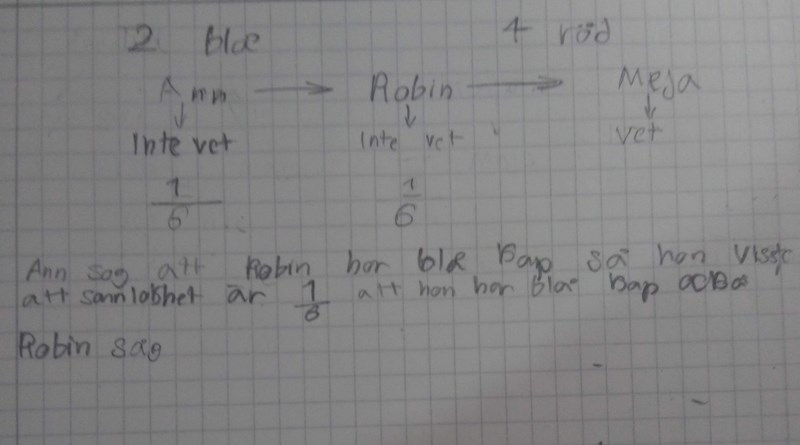 2 blæ 4 röd
Ann → Robin → Meja
↓ ↓ ↓
Inte vet Inte vet vet
1/6 1/6
Ann sag att Robin har blæ Bap så hon visste
att sannlokhet är 1/6 att hon har blæ Bap
Robin sag